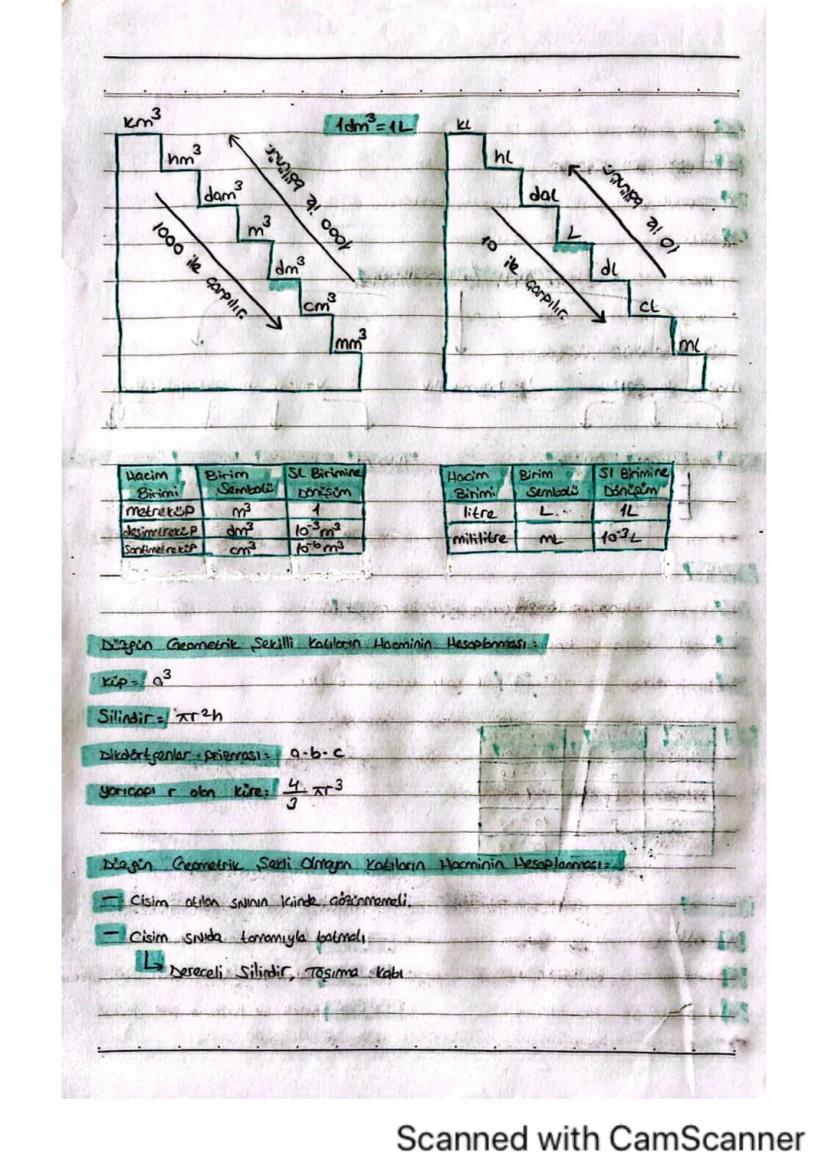 km³
1dm³ = 1L
kl
hm³
hl
dam³
dal
m³
L
dm³
dl
cm³
cl
mm³
ml
1000 ile bölünür.
1000 ile çarpılır.
10 ile bölünür.
10 ile çarpılır.
Hacim Birimi Birim Sembolü SI Birimine Dönüşüm
metreküp m³ 1
desimetreküp dm³ 10⁻³m³
santimetreküp cm³ 10⁻⁶m³
Hacim Birimi Birim Sembolü SI Birimine Dönüşüm
litre L 1L
mililitre mL 10⁻³L
Düzgün Geometrik Şekilli Katıların Hacminin Hesaplanması:
Küp = a³
Silindir = πr²h
Dikdörtgenler prizması = a.b.c
Yarıçapı r olan küre: 4/3 πr³
Düzgün Geometrik Şekli Olmayan Katıların Hacminin Hesaplanması:
— Cisim atılan sıvının içinde çözünmemeli.
— Cisim sıvıda tamamıyla batmalı
↳ Dereceli Silindir, Taşırma Kabı
Scanned with CamScanner